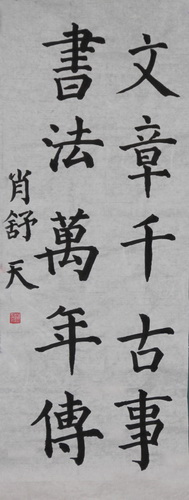 文章千古事
書法萬年傳
肖舒天